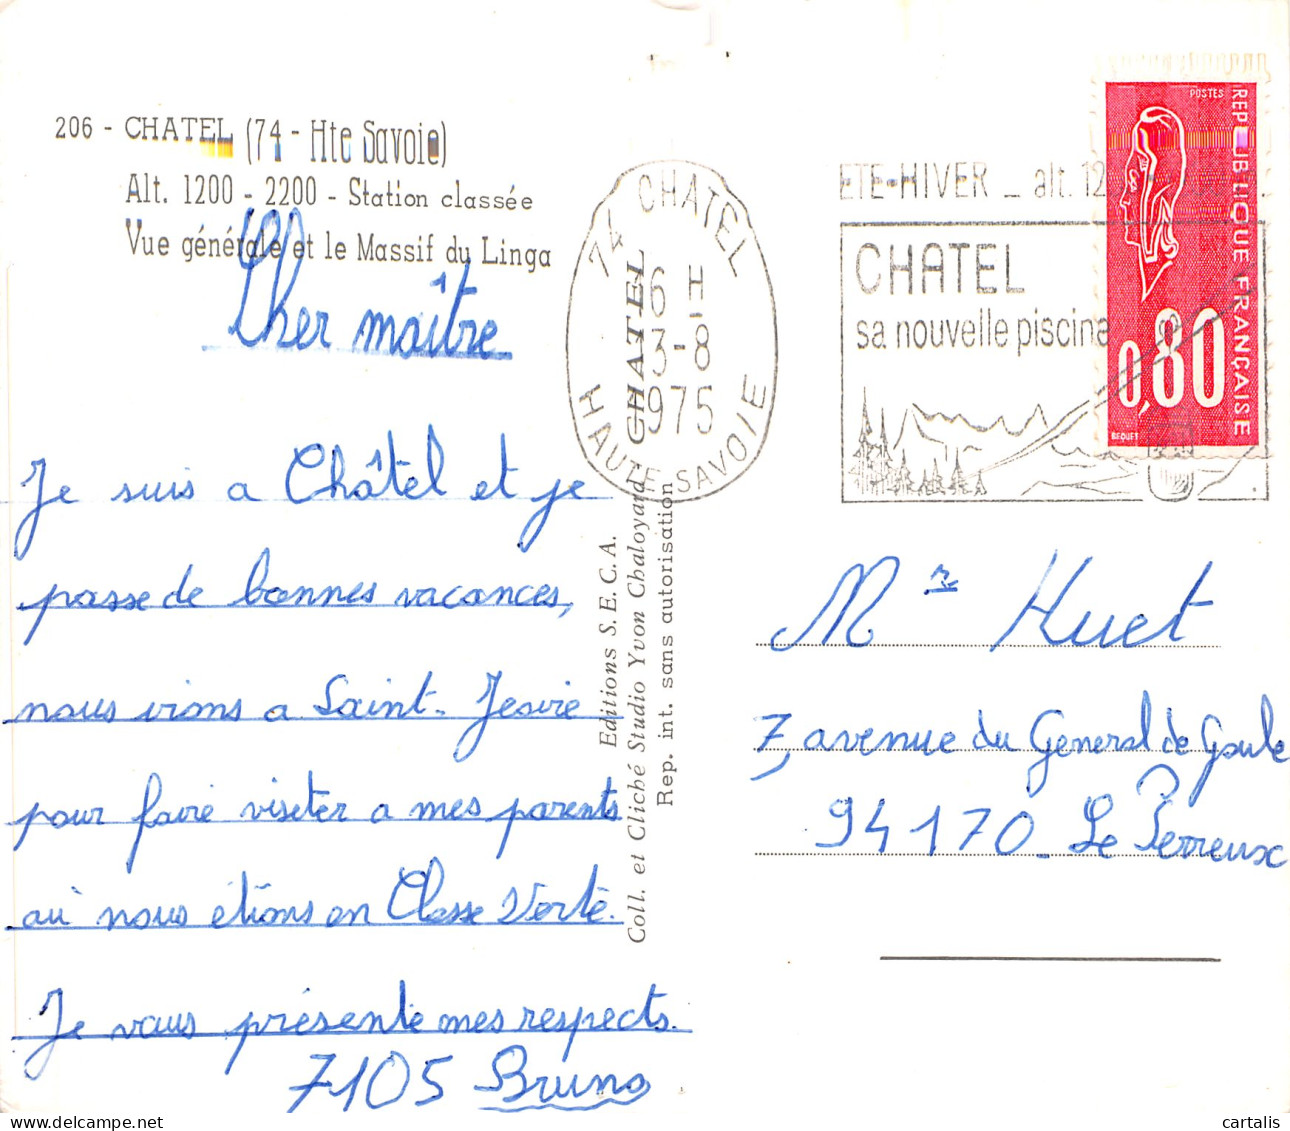 206 - CHATEL (74 - Hte Savoie)
Alt. 1200 - 2200 - Station classée
Vue générale et le Massif du Linga
Cher maître
Je suis a Châtel et je
passe de bonnes vacances,
nous irions a Saint-Jeoire
pour faire visiter a mes parents
où nous étions en Classe Verte.
Je vous présente mes respects.
7105 Bruno
CHATEL
Editions S.E.C.A.
Coll. et Cliché Studio Yvon Chaloyard
Rep. int. sans autorisation
74 CHATEL
16 H
13-8
1975
HAUTE-SAVOIE
ETE-HIVER _ alt. 12
CHATEL
sa nouvelle piscine
POSTES
REPUBLIQUE FRANÇAISE
0,80
BEQUET
Mr Huet
7, avenue du General de Gaule
94170 - Le Perreux
cartalis